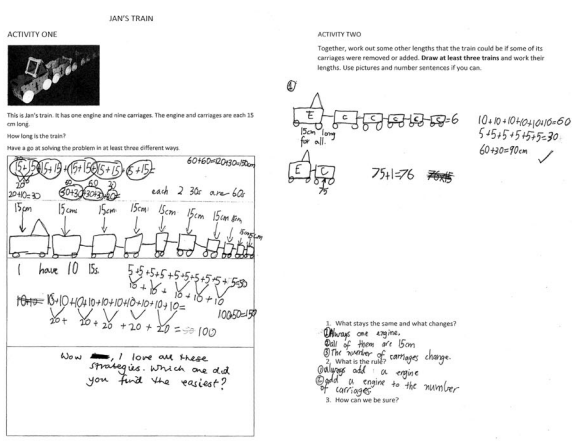 JAN'S TRAIN
ACTIVITY ONE
This is Jan's train. It has one engine and nine carriages. The engine and carriages are each 15
cm long.
How long is the train?
Have a go at solving the problem in at least three different ways.
15+15+15+15+15+15+15+15+15+15=
60+60=120+30=150cm
20+10=30
30+30+30+30+30=
each 2 30s are 60s
15cm 15cm 15cm 15cm 15cm 15cm 15cm
I have 10 15s.
5+5+5+5+5+5+5+5+5+5=50
10+10+10+10+10
10+10+10+10+10+10+10+10+10+10=
20+20+20+20+20=100
100+50=150
Wow, I love all these
strategies. Which one did
you find the easiest?
ACTIVITY TWO
Together, work out some other lengths that the train could be if some of its
carriages were removed or added. Draw at least three trains and work their
lengths. Use pictures and number sentences if you can.
①
E C C C C C =6
15cm long
for all.
10+10+10+10+10+10=60
5+5+5+5+5+5=30
60+30=90cm
E C
75
75+1=76
1. What stays the same and what changes?
①Always one engine,
②all of them are 15cm
③The number of carriages change.
2. What is the rule?
①always add a engine
②add a engine to the number
of carriages
3. How can we be sure?